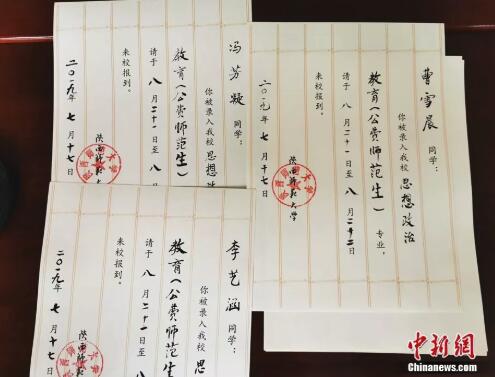 冯芳凝 同学：
你被录入我校 思想政
教育（公费师范生）
请于 八 月二十一日至 八
来校报到。
陕西师范大学
二〇一九年 七 月 十七日
曹雪晨 同学：
你被录入我校 思想政治
教育（公费师范生）专业，
请于 八 月二十一日至 八 月二十二日
来校报到。
陕西师范大学
二〇一九年 七 月 十七日
李艺涵 同学：
你被录入我校 思
教育（公费师范生
请于 八 月二十一日至 八
来校报到。
陕西师范大
二〇一九年 七 月 十七日
中新网
Chinanews.com